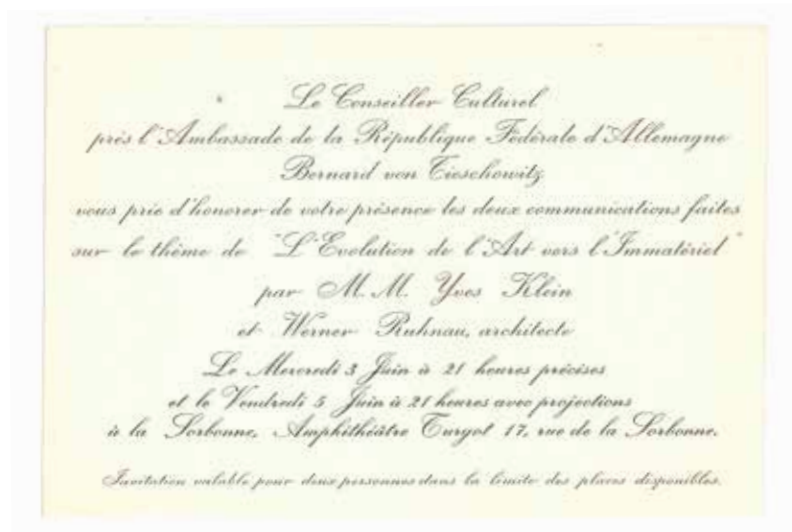 Le Conseiller Culturel
près l'Ambassade de la République Fédérale d'Allemagne
Bernard von Tieschowitz
vous prie d'honorer de votre présence les deux communications faites
sur le thème de "L'Evolution de l'Art vers l'Immatériel"
par M.M. Yves Klein
et Werner Ruhnau, architecte
Le Mercredi 3 Juin à 21 heures précises
et le Vendredi 5 Juin à 21 heures avec projections
à la Sorbonne, Amphithéâtre Turgot 17, rue de la Sorbonne.
Invitation valable pour deux personnes dans la limite des places disponibles.